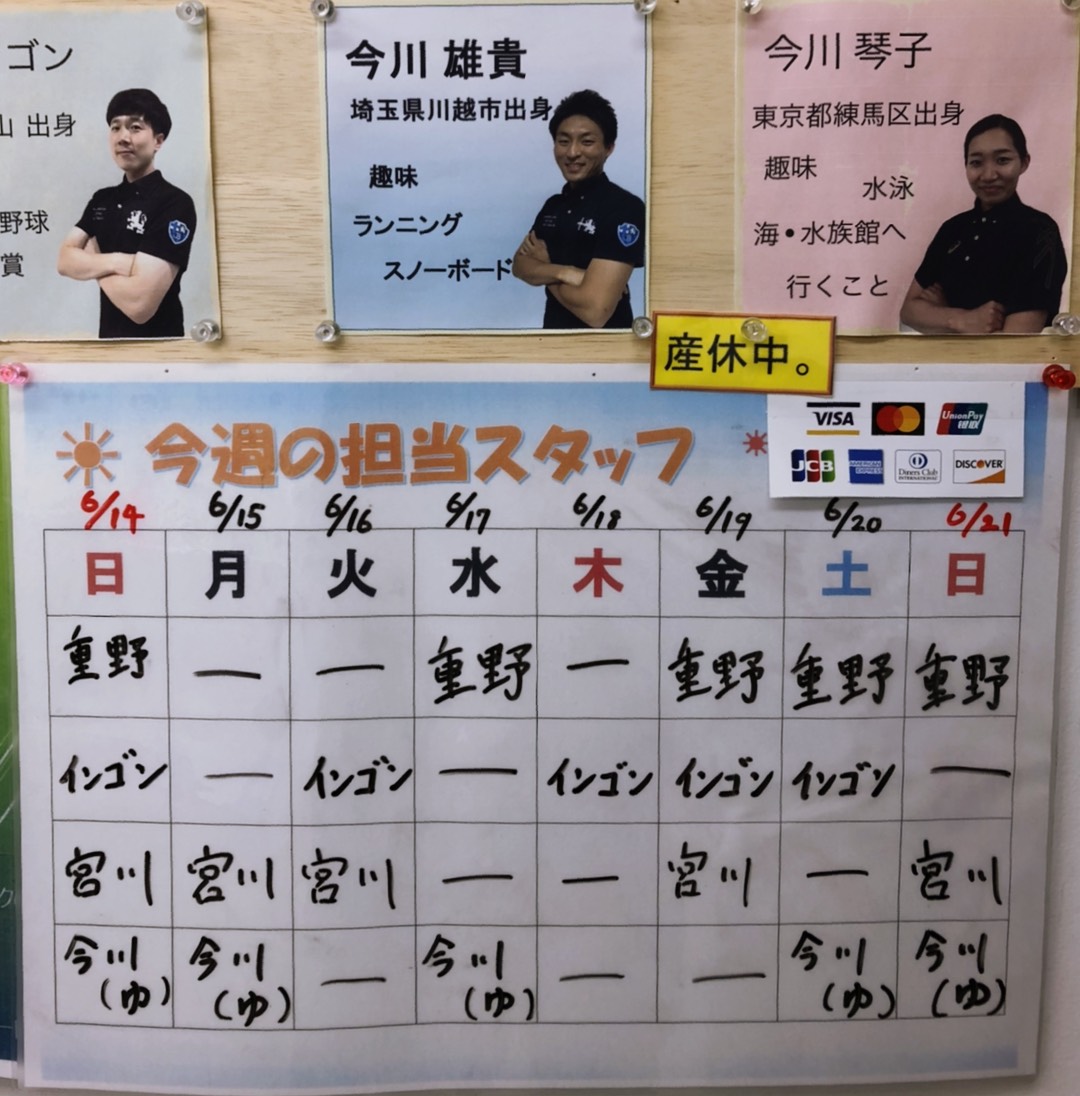 ゴン
山 出身
野球
賞
今川 雄貴
埼玉県川越市出身
趣味
ランニング
スノーボード
今川 琴子
東京都練馬区出身
趣味
水泳
海・水族館へ
行くこと
産休中。
今週の担当スタッフ
VISA
UnionPay
银联
JCB
AMERICAN EXPRESS
Diners Club
INTERNATIONAL
DISCOVER
6/14 6/15 6/16 6/17 6/18 6/19 6/20 6/21
日 月 火 水 木 金 土 日
重野 — — 重野 — 重野 重野 重野
インゴン — インゴン — インゴン インゴン インゴン —
宮川 宮川 宮川 — — 宮川 — 宮川
今川(ゆ) 今川(ゆ) — 今川(ゆ) — — 今川(ゆ) 今川(ゆ)